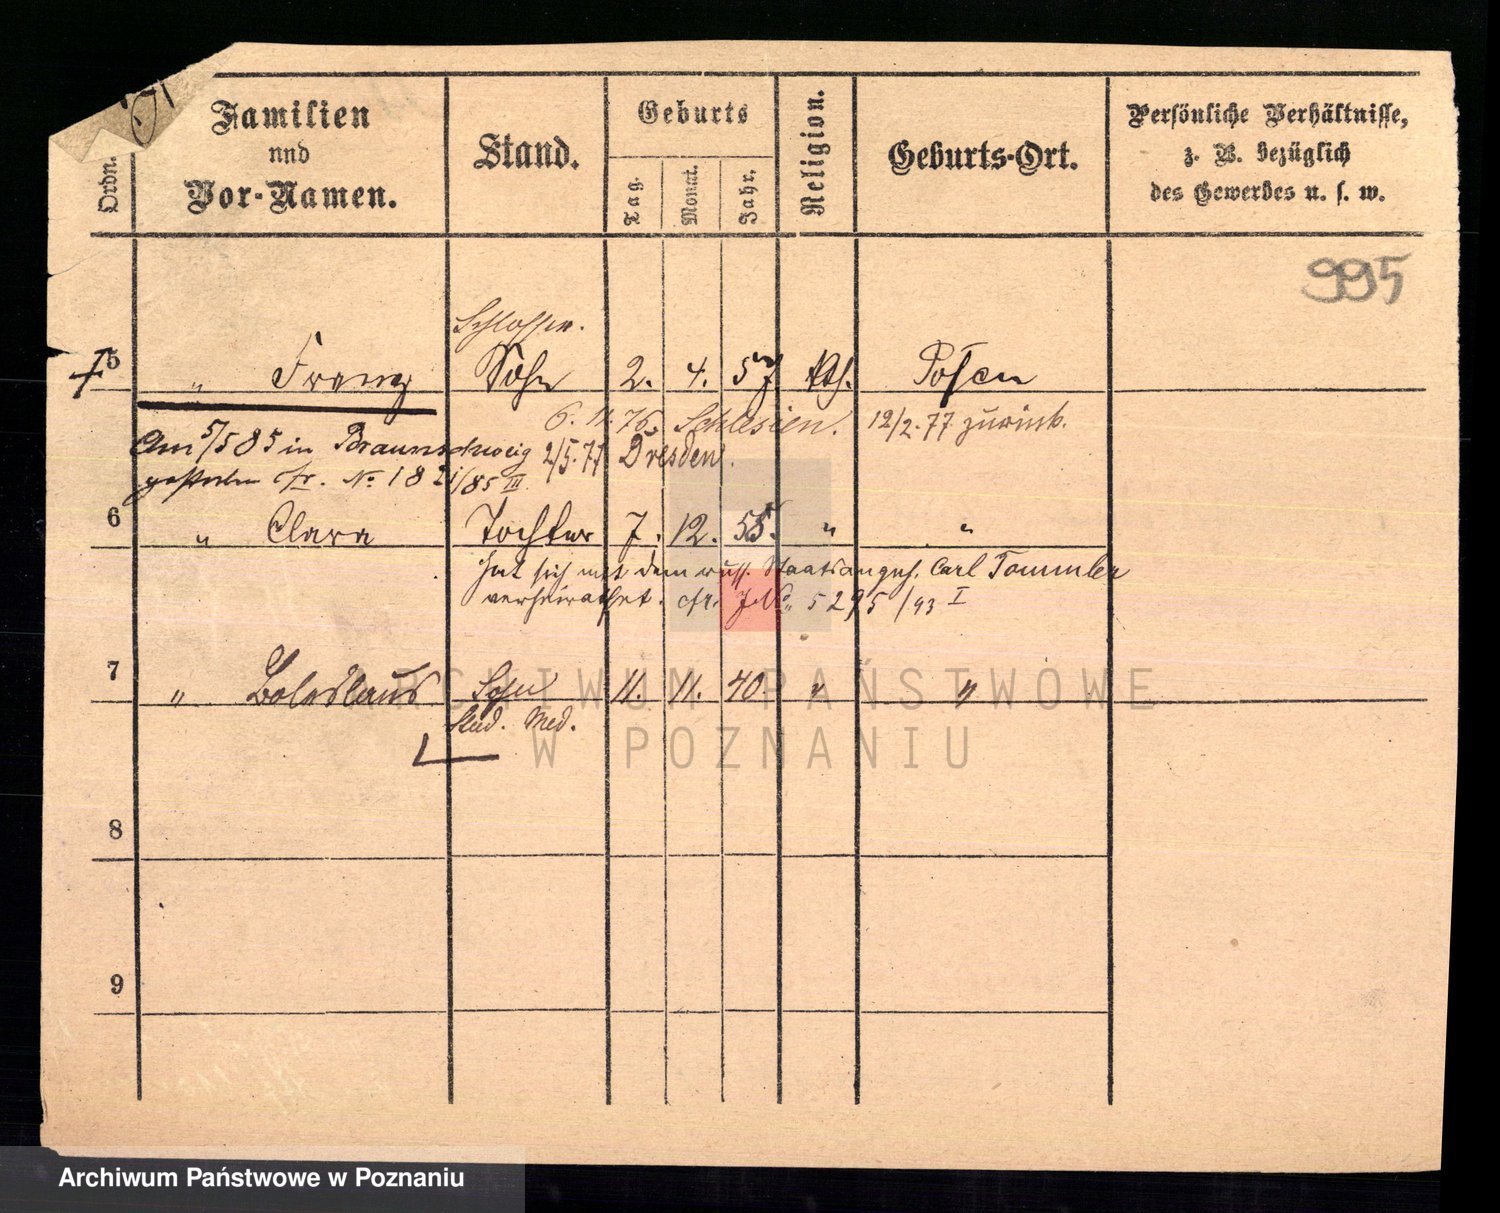 Ordn.
Familien
und
Vor-Namen.
Stand.
Geburts
Tag.
Monat.
Jahr.
Religion.
Geburts-Ort.
Persönliche Verhältnisse,
z. B. bezüglich
des Gewerbes u. s. w.
995
Schlosser.
5 " Franz Sohn 2. 4. 57. kth. Posen
6. 11. 76. Schlesien. 12/2. 77 zurück.
Am 5/5 85 in Braunschweig 2/5. 77 Dresden.
gestorben cfr. No 1821/85 III.
6 " Clara Tochter 7. 12. 55. " "
hat sich mit dem russ. Staatsangeh. Carl Tommler
verheirathet. cfr. J.No. 5295/93 I
7 " Boleslaus Sohn 11. 11. 40 " "
Stud. Med.
8
9
ARCHIWUM PAŃSTWOWE
W POZNANIU
Archiwum Państwowe w Poznaniu